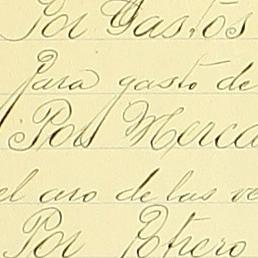 Por Gastos
Para gasto de
Por Merca
el aro de las ve
Por Potrero